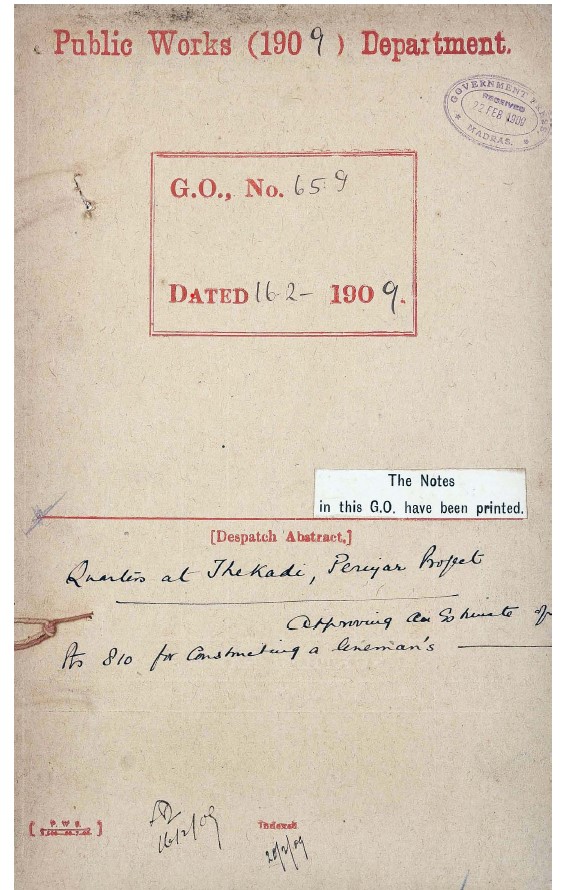 Public Works (1909) Department.
GOVERNMENT PRESS
RECEIVED
22 FEB 1909
* MADRAS. *
G.O., No. 659
DATED 16-2- 1909.
The Notes
in this G.O. have been printed.
[Despatch Abstract.]
Quarters at Thekadi, Periyar Project
Approving an Estimate of
Rs 810 for Constructing a lineman's
[P.W.S.]
16/2/09
Indexed
20/2/09